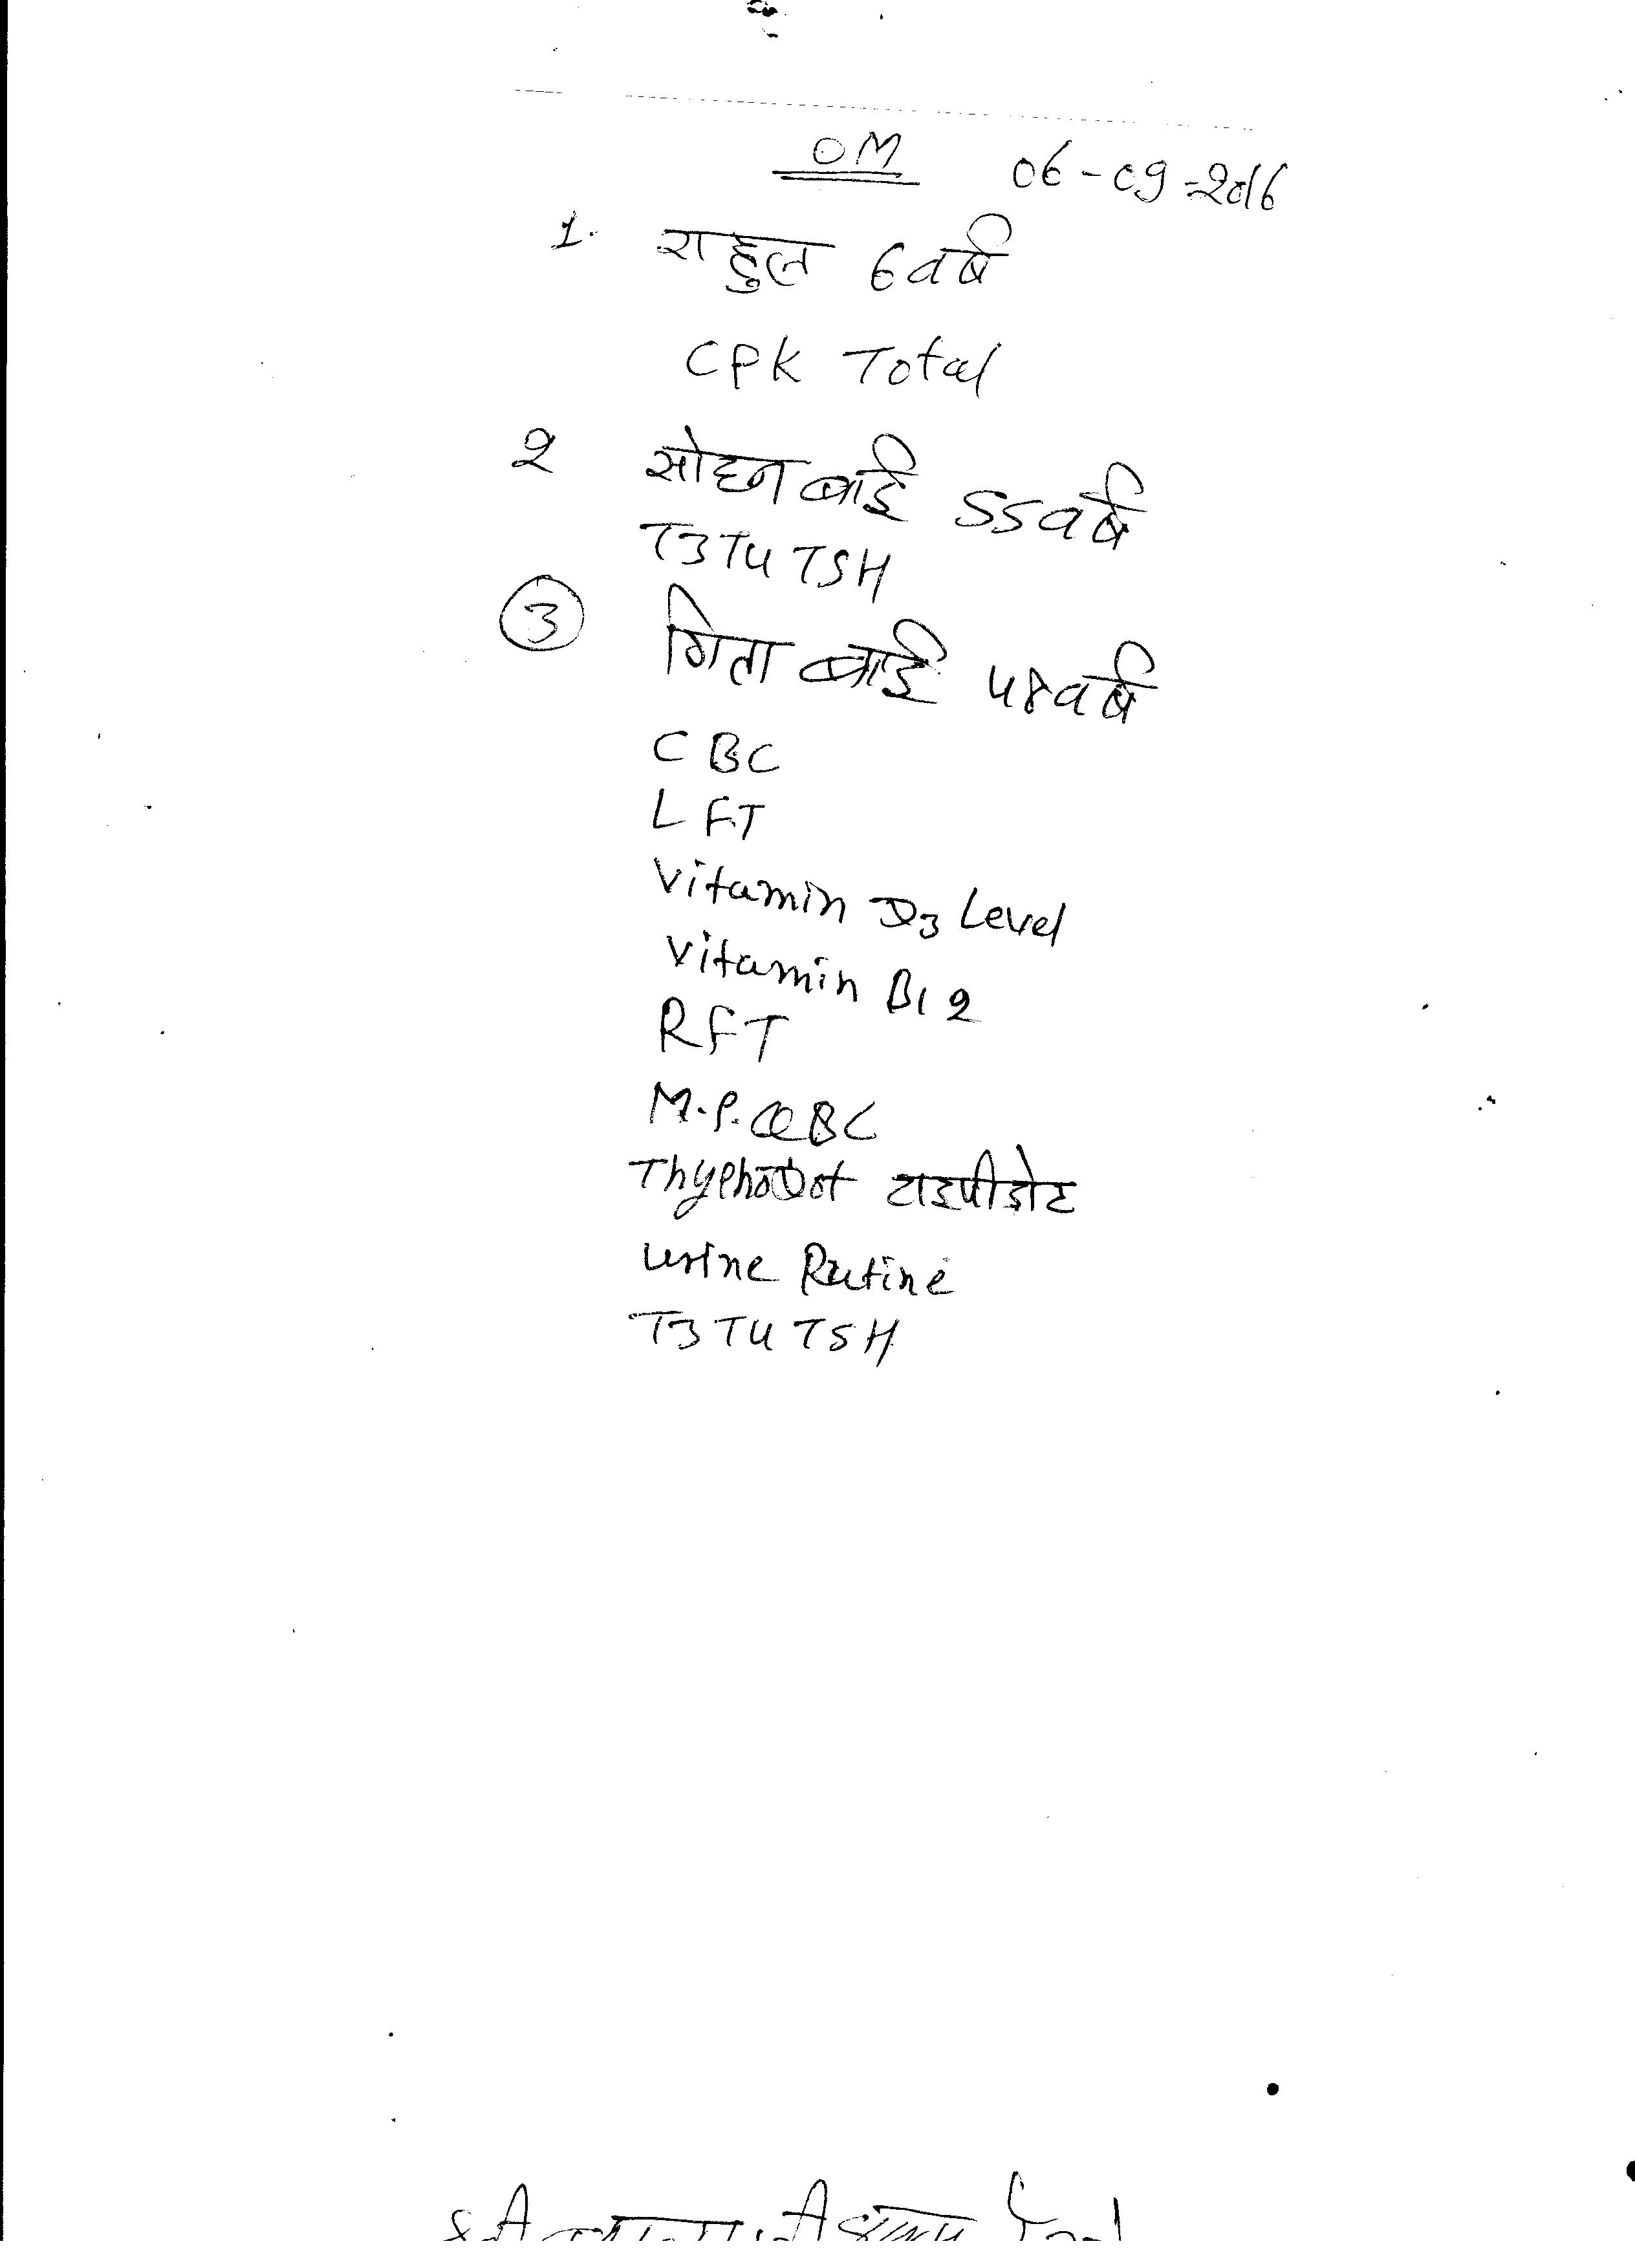 OM 06-09-2016
1. राहुल 6 वर्ष
CPK Total
2 सोहन बाई 55 वर्ष
T3 T4 TSH
3 गिता बाई 48 वर्ष
CBC
LFT
Vitamin D3 Level
Vitamin B12
RFT
M.P. QBC
ThyphoDot टाइपीडोट
Urine Rutine
T3 T4 TSH